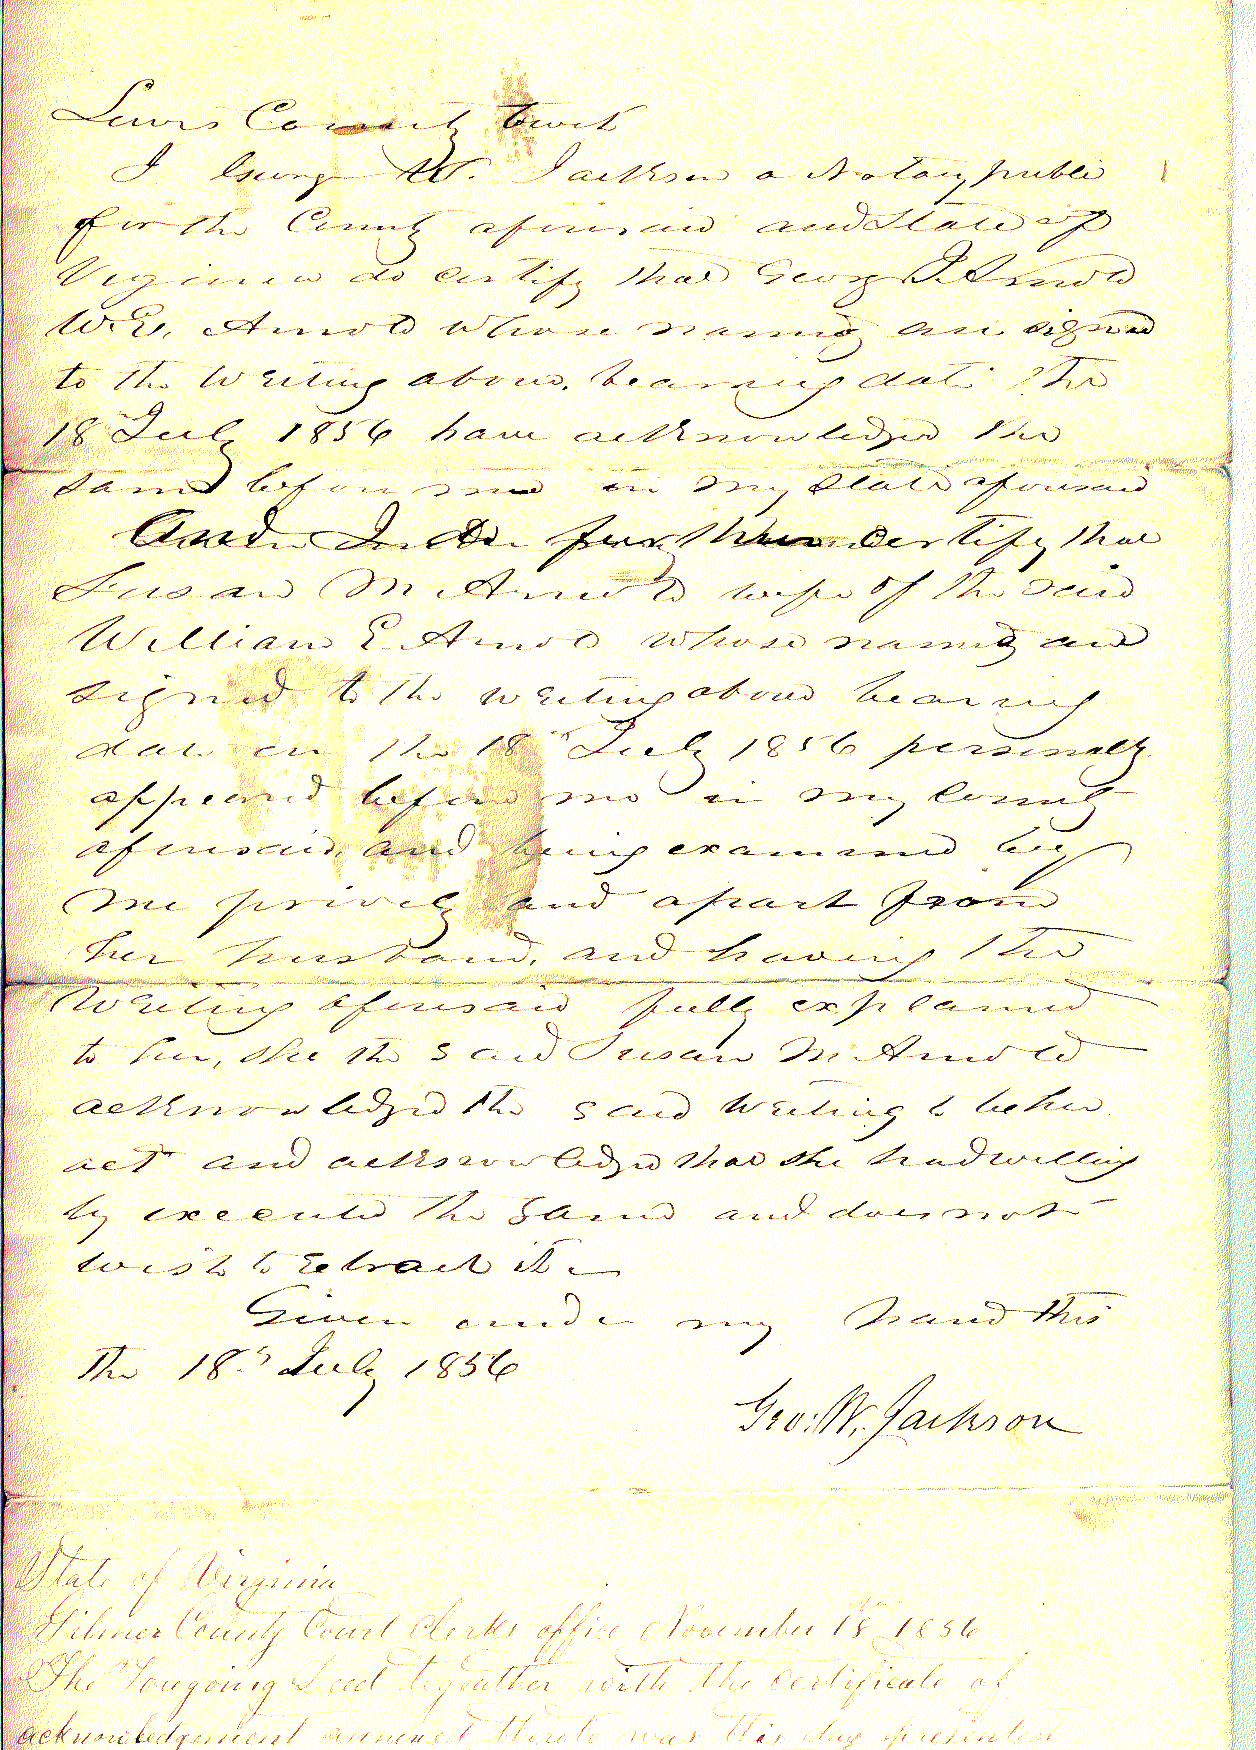 Lewis County towit
I George W. Jackson a Notary public
for the County aforesaid and State of
Virginia do certify that George J Arnold
W. E. Arnold whose names are signed
to the writing above, bearing date the
18th July 1856 have acknowledged the
same before me in my State aforesaid
And I do further certify that
Susan M Arnold wife of the said
William E. Arnold whose names are
signed to the writing above bearing
date on the 18th July 1856 personally
appeared before me in my County
aforesaid, and being examined by
me privily and apart from
her husband, and having the
writing aforesaid fully explained
to her, she the said Susan M Arnold
acknowledged the said writing to be her
act and acknowledged that she had willing
ly executed the same and does not
wish to retract it
Given under my hand this
the 18th July 1856
Geo: W. Jackson
State of Virginia
Gilmer County Court Clerks office November 18 1856
The Foregoing Deed together with the certificate of
acknowledgement annexed thereto was this day presented